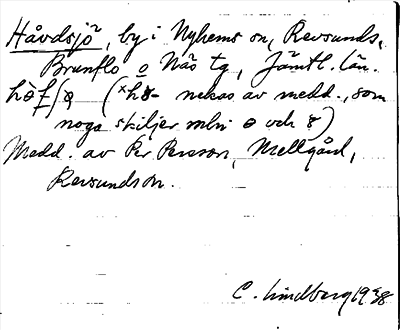 Håvdsjö, by i Nyhems sn, Revsunds,
Brunflo o Näs tg, Jämtl. län.
(ˣhɞ- nekas av medd., som
noga skiljer mln ɵ och ɞ)
Medd. av Per Persson, Mellgård,
Revsunds sn.
C. Lindberg 19